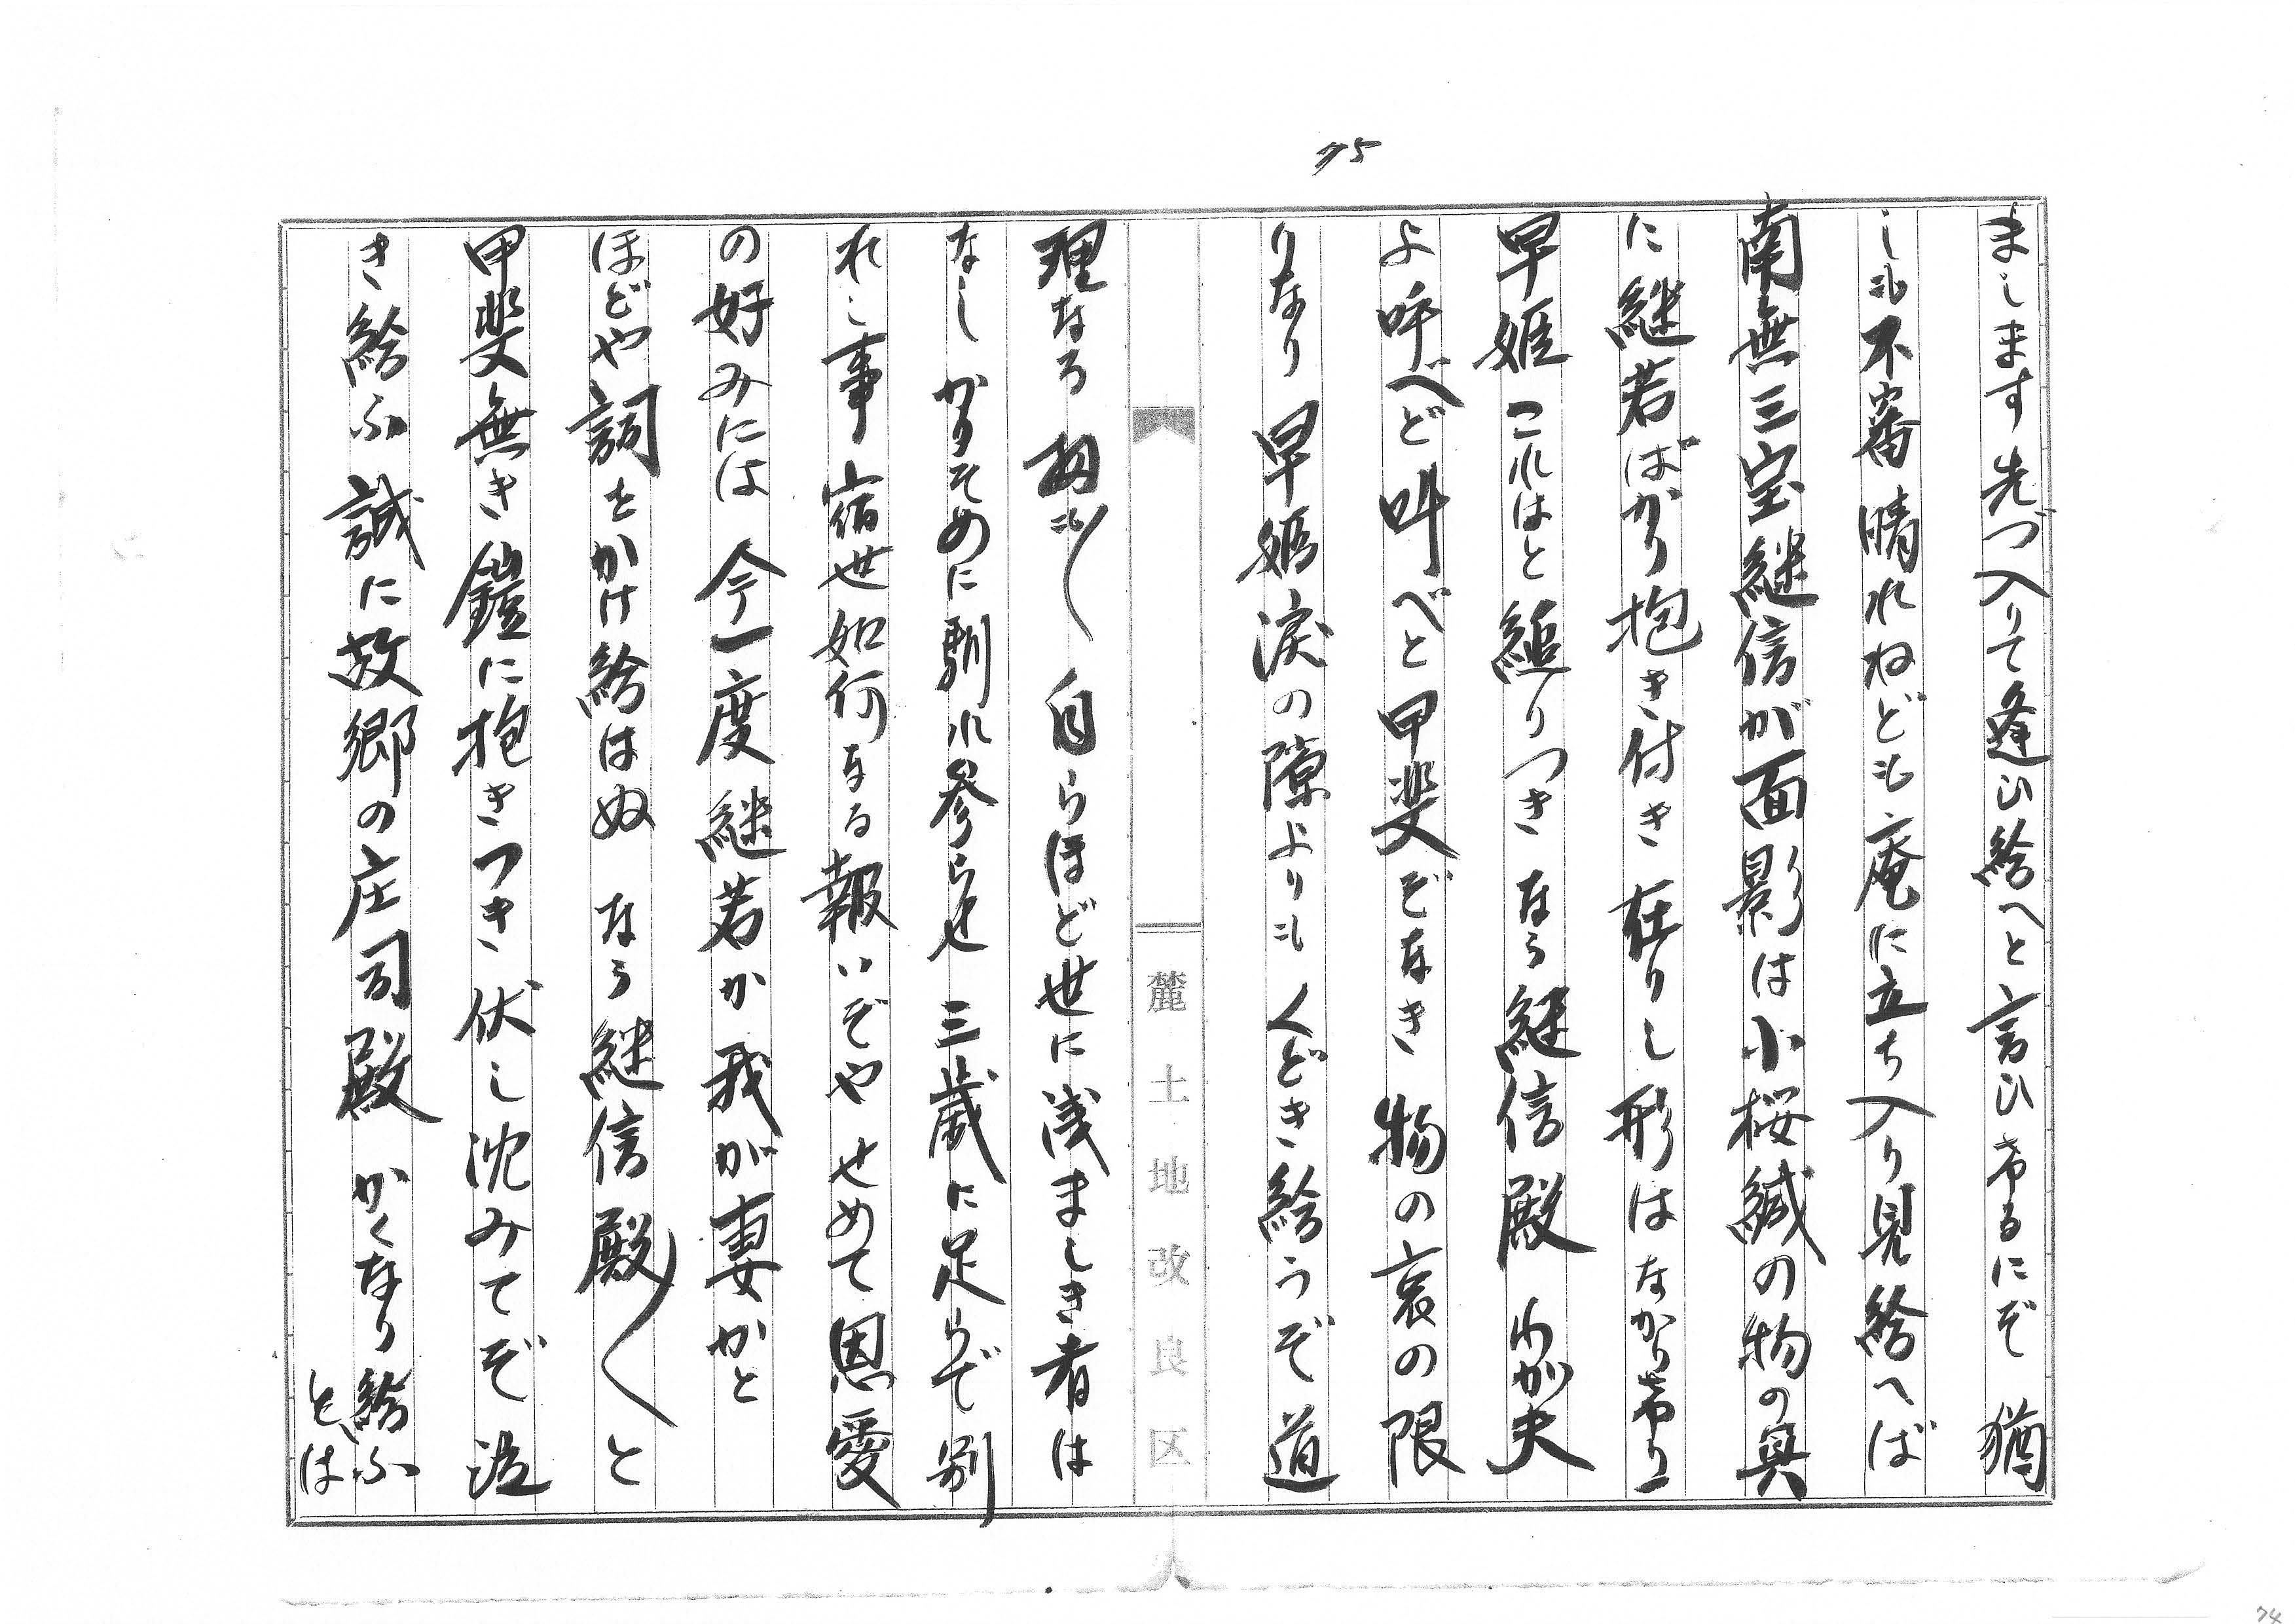 75
まします先づ入りて逢ひ給へと言ひけるにぞ 猶
しも不審晴れねども庵に立ち入り見給へば
南無三宝継信が面影は小桜縅の物の具
に継若ばかり抱き付き在りし形はなかりけり
早姫これはと縋りつきなう継信殿 わが夫
よ呼べど叫べと甲斐ぞなき物の哀の限
りなり 早姫涙の隙よりもくどき給うぞ道
理なる 扨も〱自らほど世に浅ましき者は
なし かりそめに馴れ参らせ三歳に足らで別
れし事 宿世如何なる報いぞや せめて恩愛
の好みには今一度継若か我が妻かと
ほどや詞をかけ給はぬ なう継信殿〱と
甲斐無き鎧に抱きつき伏し沈みてぞ泣
き給ふ 誠に故郷の庄司殿 かくなり給ふ
とは
麓土地改良区
74